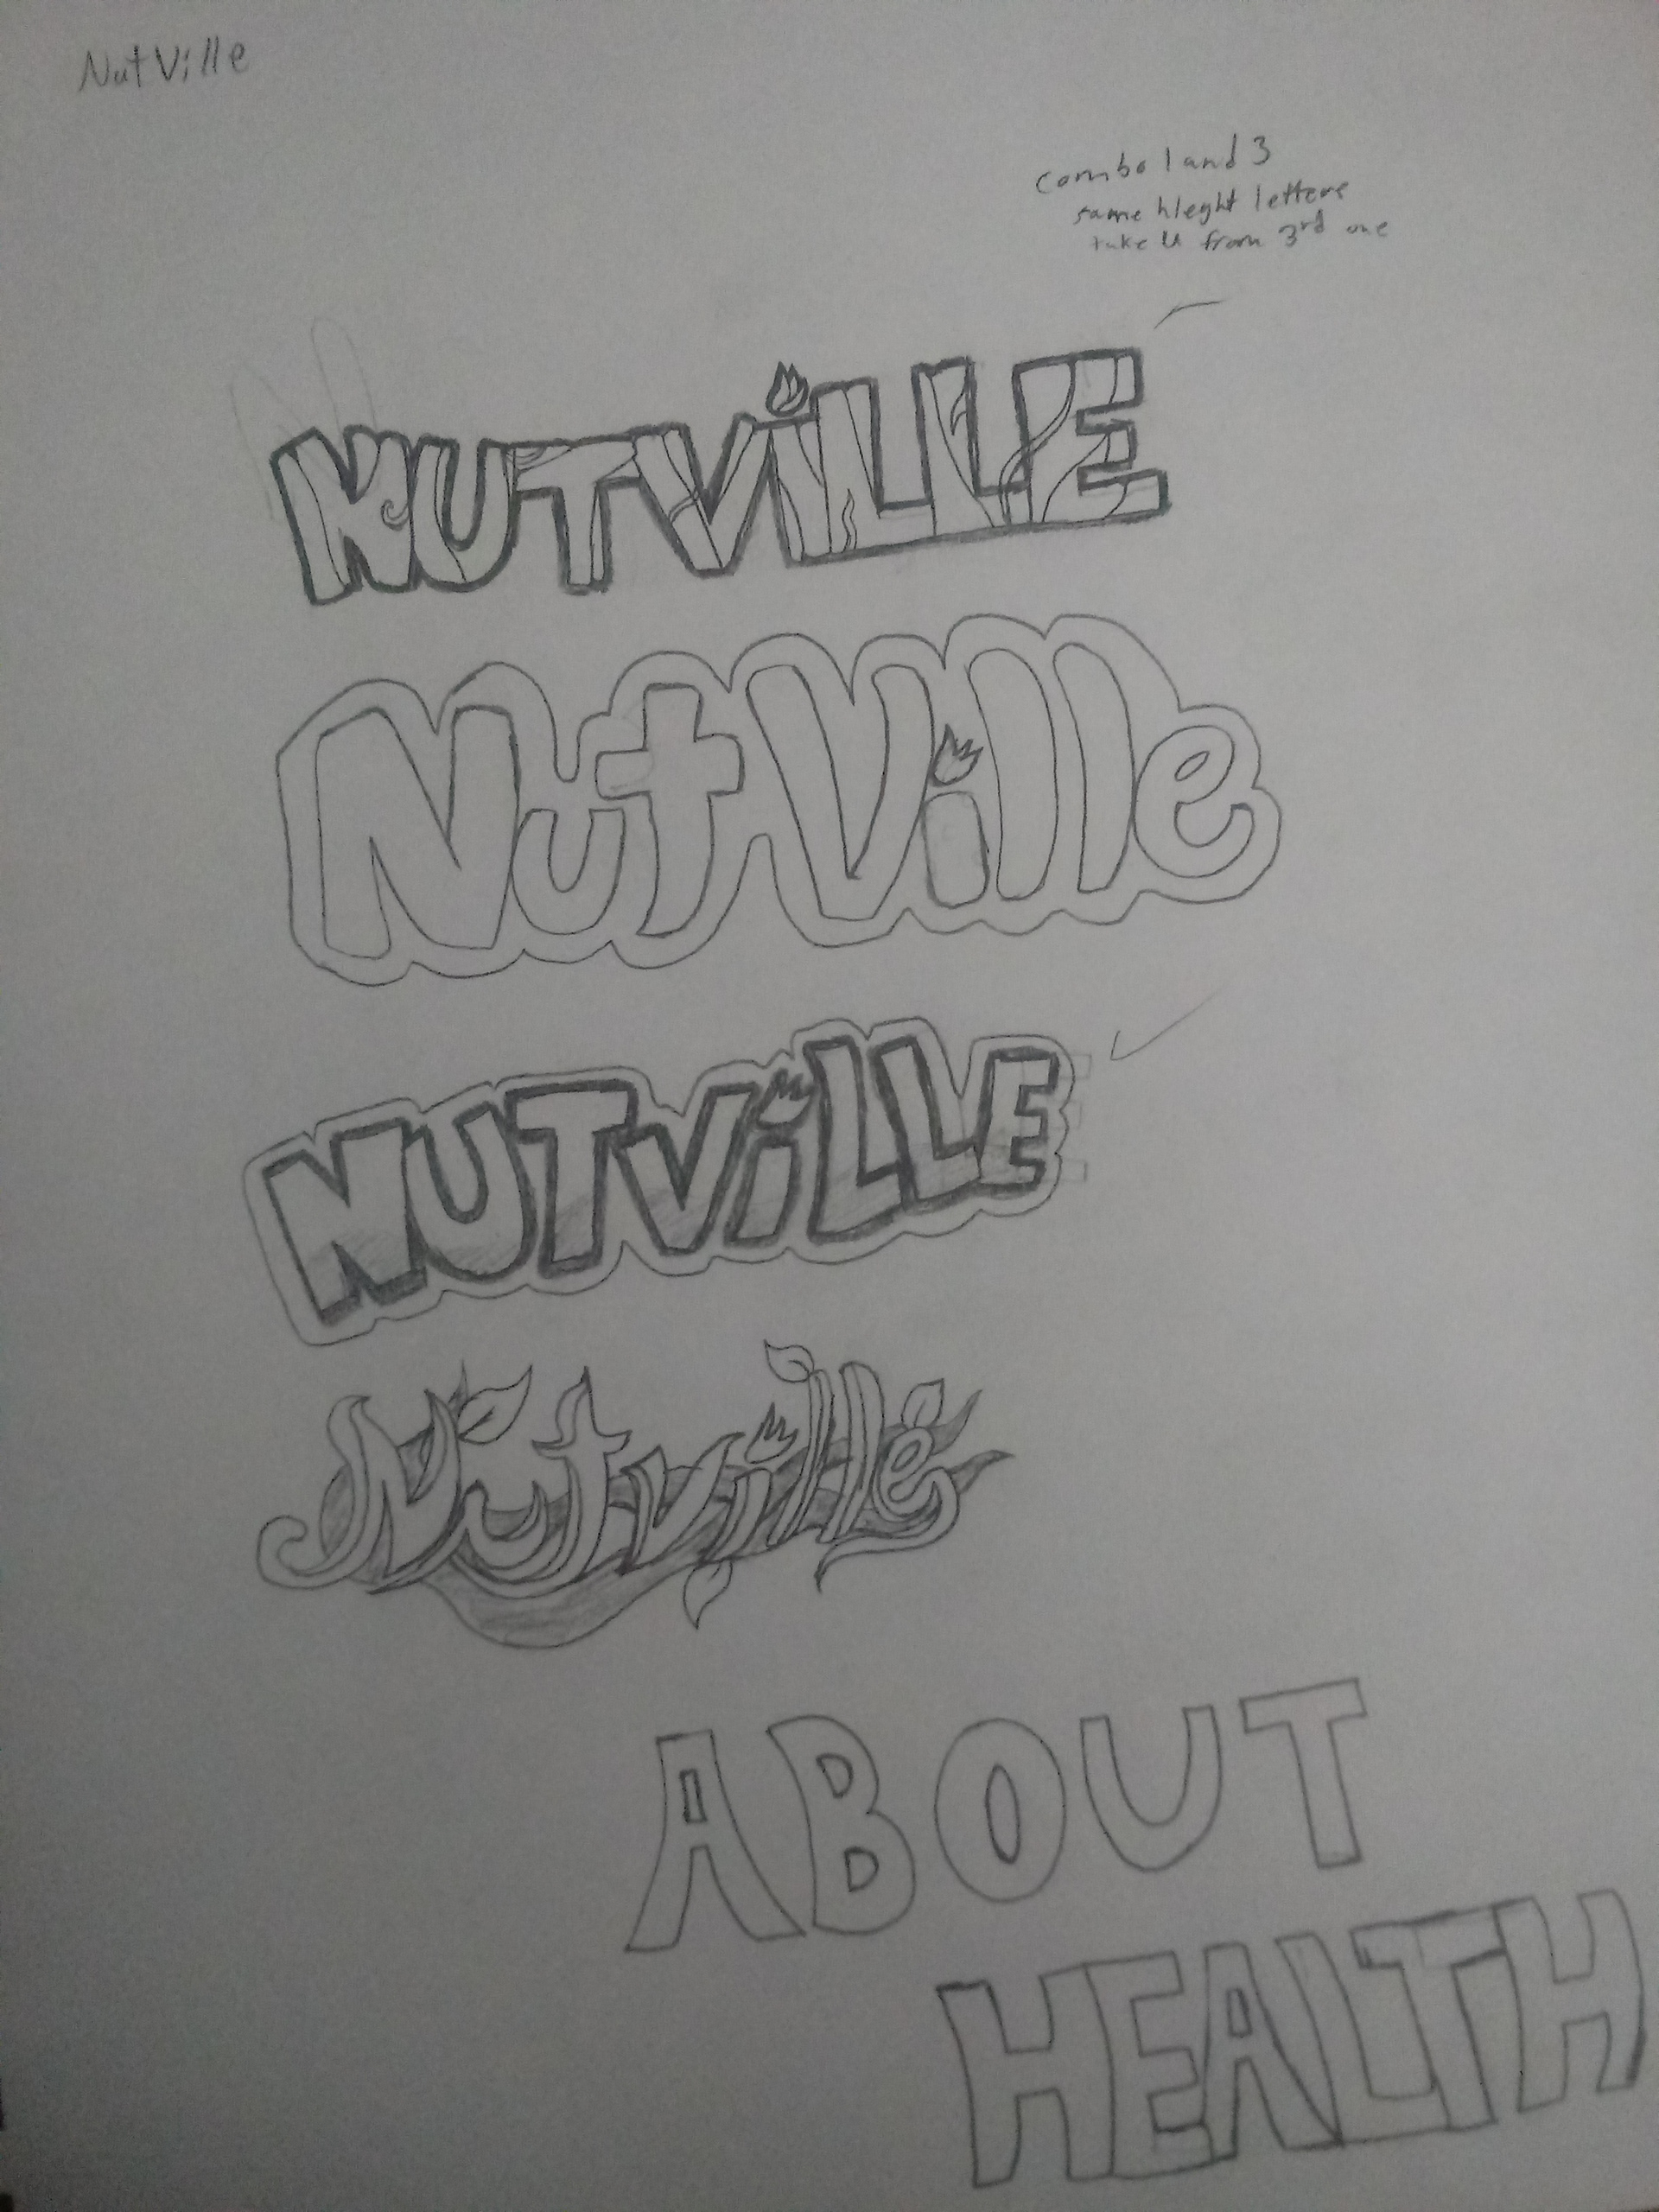 NutVille
combo 1 and 3
same hleght letters
take U from 3rd one
NUTViLLE
NutVille
NUTViLLE
Nutville
ABOUT
HEALTH